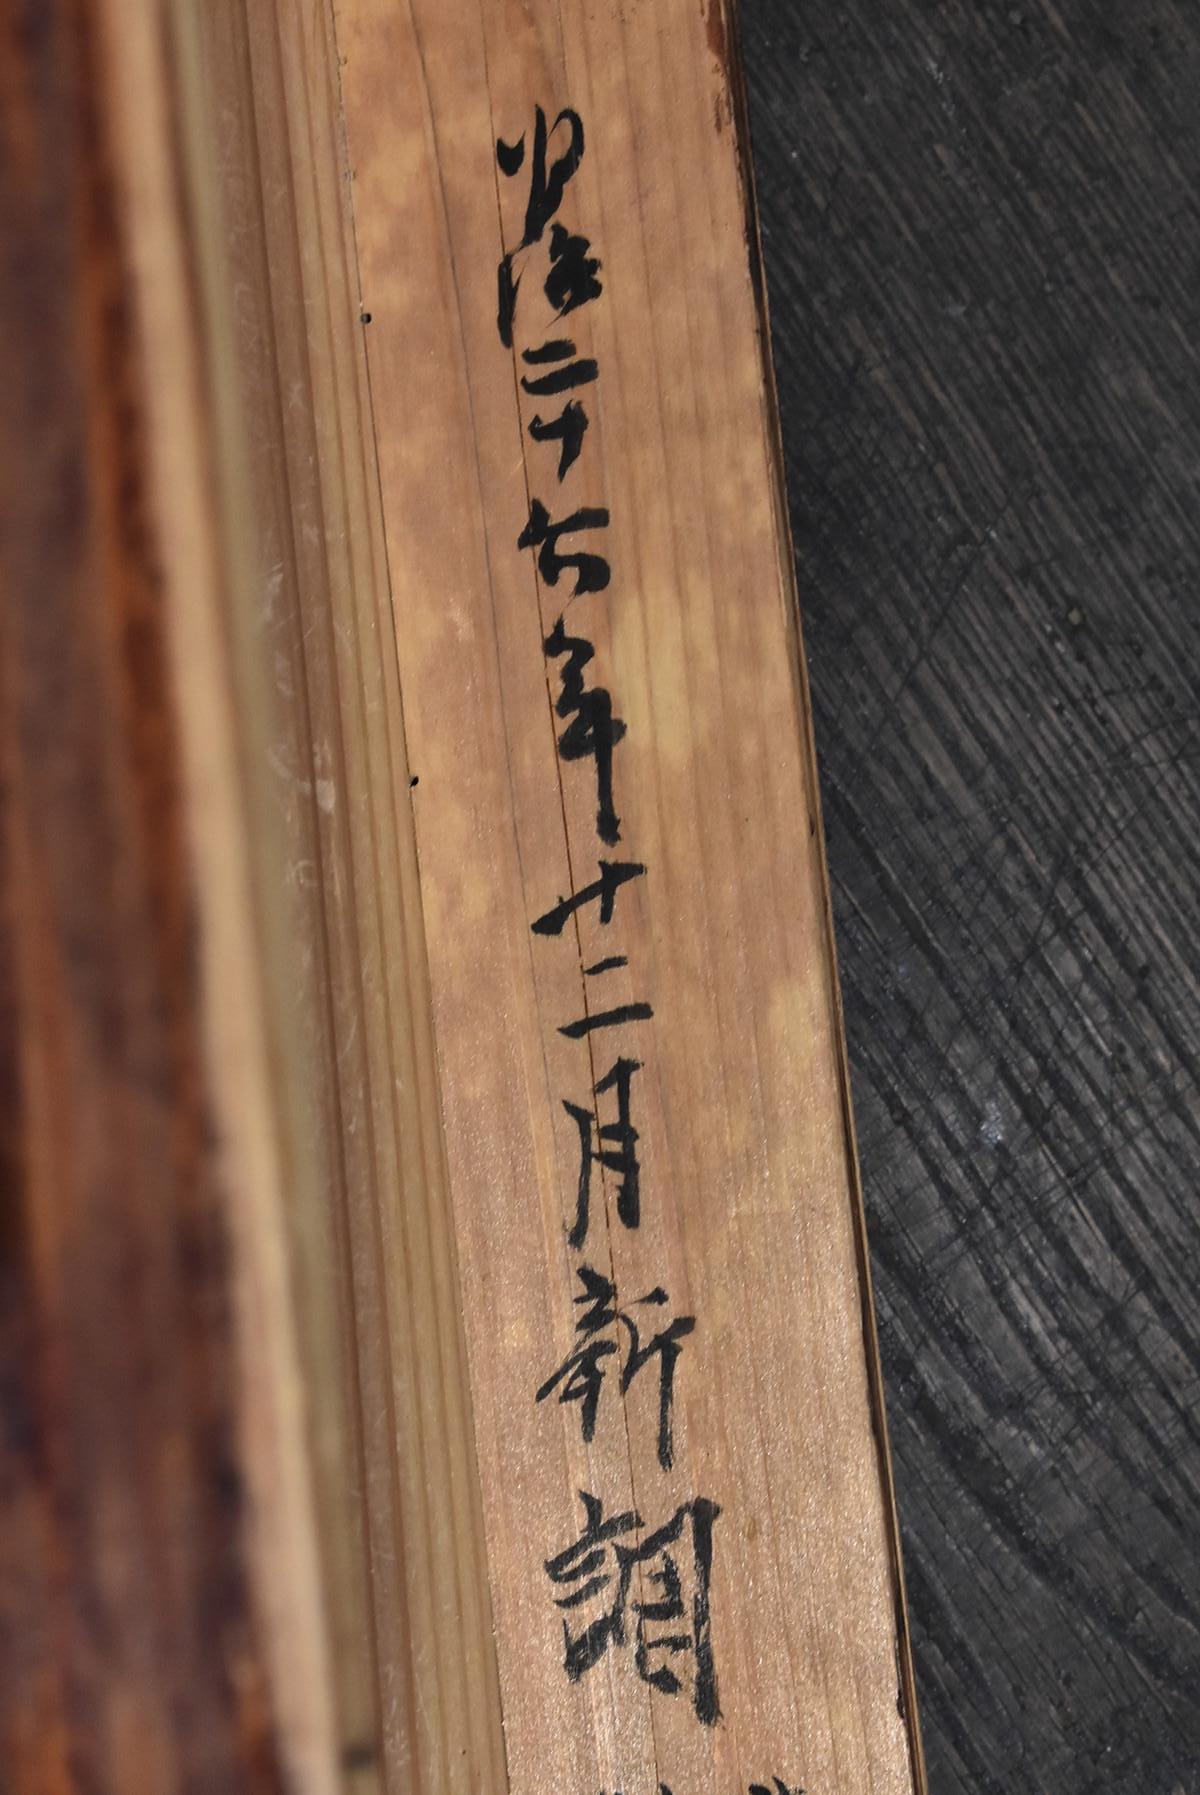 明治二十六年十二月新調